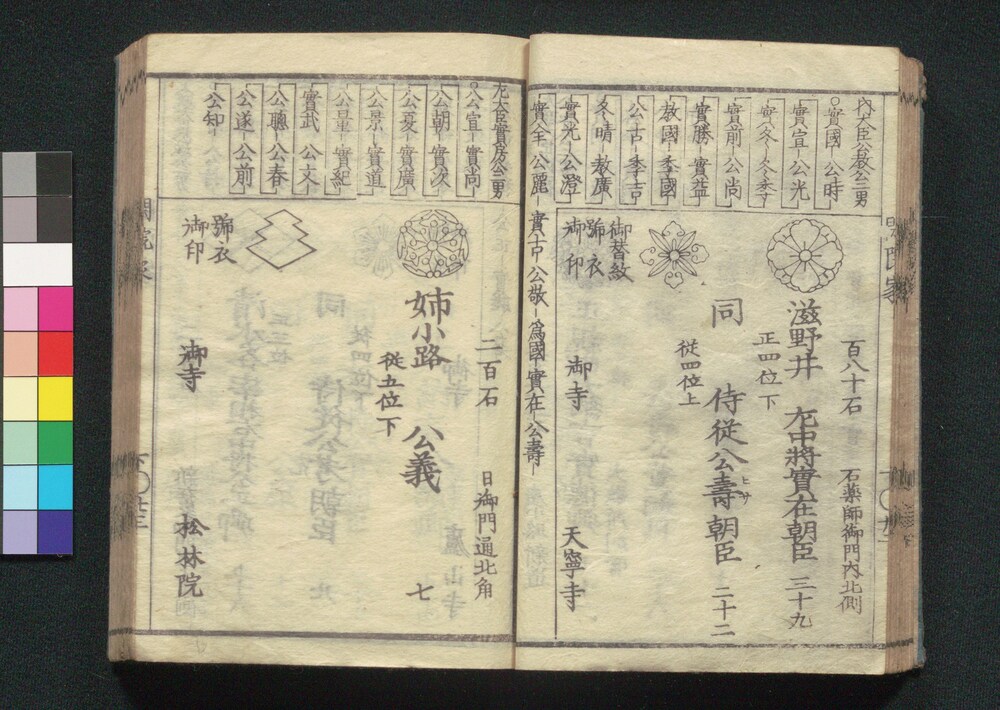 内大臣公敎公三男
實國 公時
實宣 公光
實前 公尚
實勝 實益
敎國 季國
公古 季吉
冬晴 敎廣
實光 公澄
實全 公麗
實古 公敬 爲國 實在 公壽
百八十石 石藥師御門內北側
滋野井 左中將實在朝臣 三十九
正四位下
同 侍從公壽朝臣 二十二
ヒサ
從四位上
御替紋
號衣
御印
御寺 天寧寺
左大臣實房公三男
公宣 實尚
公朝 實次
公夏 實廣
公景 實道
公量 實紀
實武 公文
公聰 公春
公遂 公前
公知
二百石 日御門通北角
姉小路 公義 七
從五位下
號衣
御印
御寺 松林院